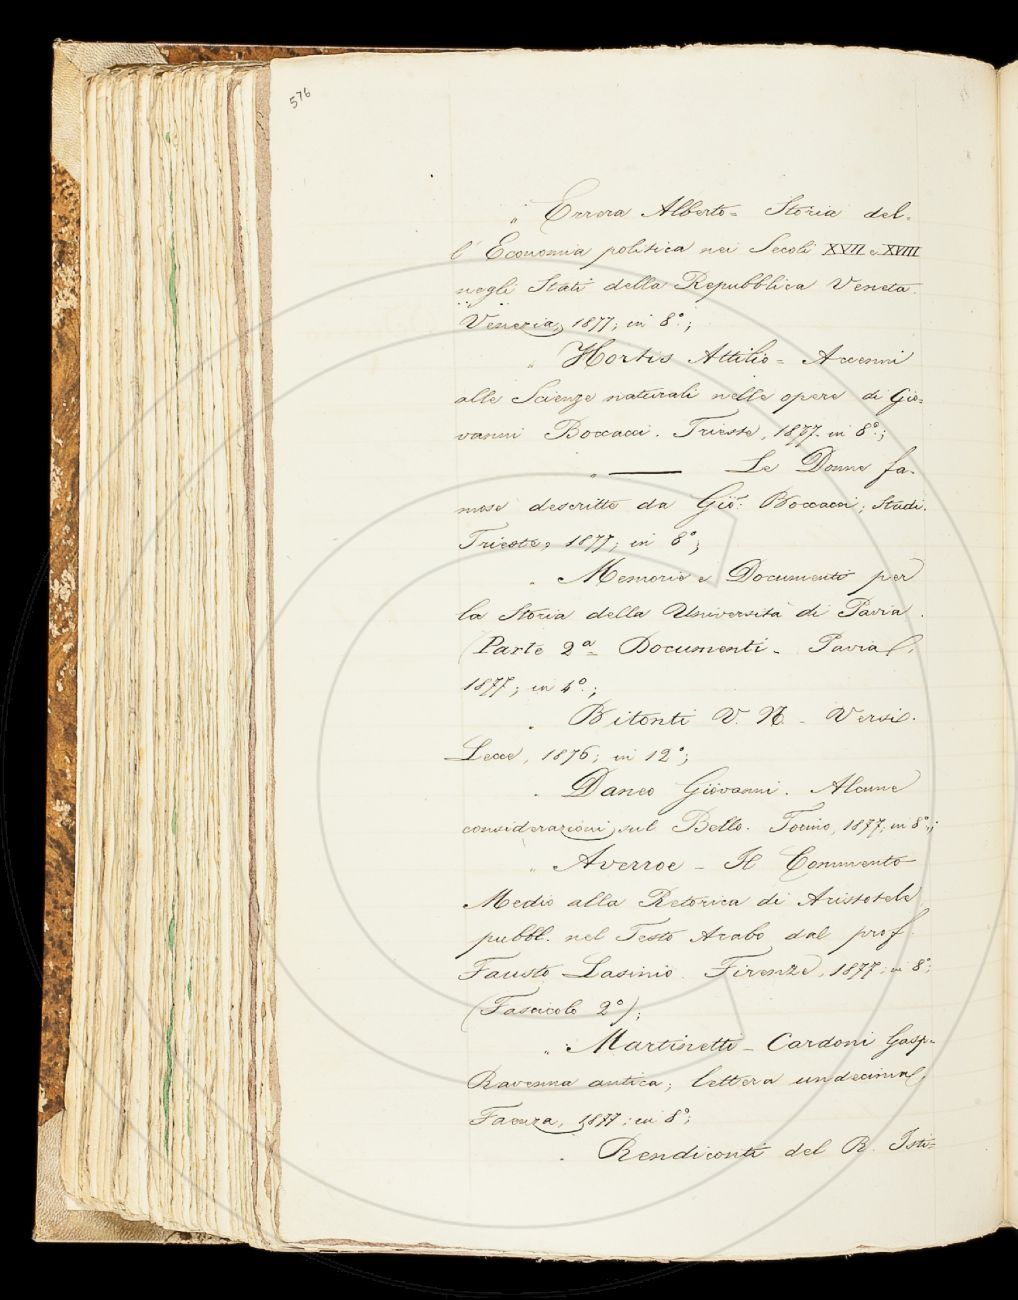 576
„ Errera Alberto = Storia del=
l'Economia politica nei Secoli XVII e XVIII
negli Stati della Repubblica Veneta.
Venezia, 1877; in 8°.;
„ Hortis Attilio = Accenni
alle Scienze naturali nelle opere di Gio=
vanni Boccacci. Trieste, 1877. in 8°.;
„ ——— Le Donne fa-
mose descritte da Gio: Boccacci; Studi.
Trieste, 1877; in 8°;
„ Memorie e Documenti per
la Storia della Università di Pavia.
(Parte 2ª = Documenti - Pavia),
1877; in 4°.;
„ Bitonti V. N. - Versi.
Lecce, 1876; in 12°;
„ Daneo Giovanni. Alcune
considerazioni sul Bello. Torino, 1877; in 8°.;
„ Averroe - Il Commento
Medio alla Retorica di Aristotele
pubbl. nel Testo Arabo dal prof.
Fausto Lasinio. Firenze, 1877; in 8°;
(Fascicolo 2°);
„ Martinetti - Cardoni Gasp.
Ravenna antica; lettera undecima,
Faenza, 1877; in 8°;
„ Rendiconti del R. Isti=